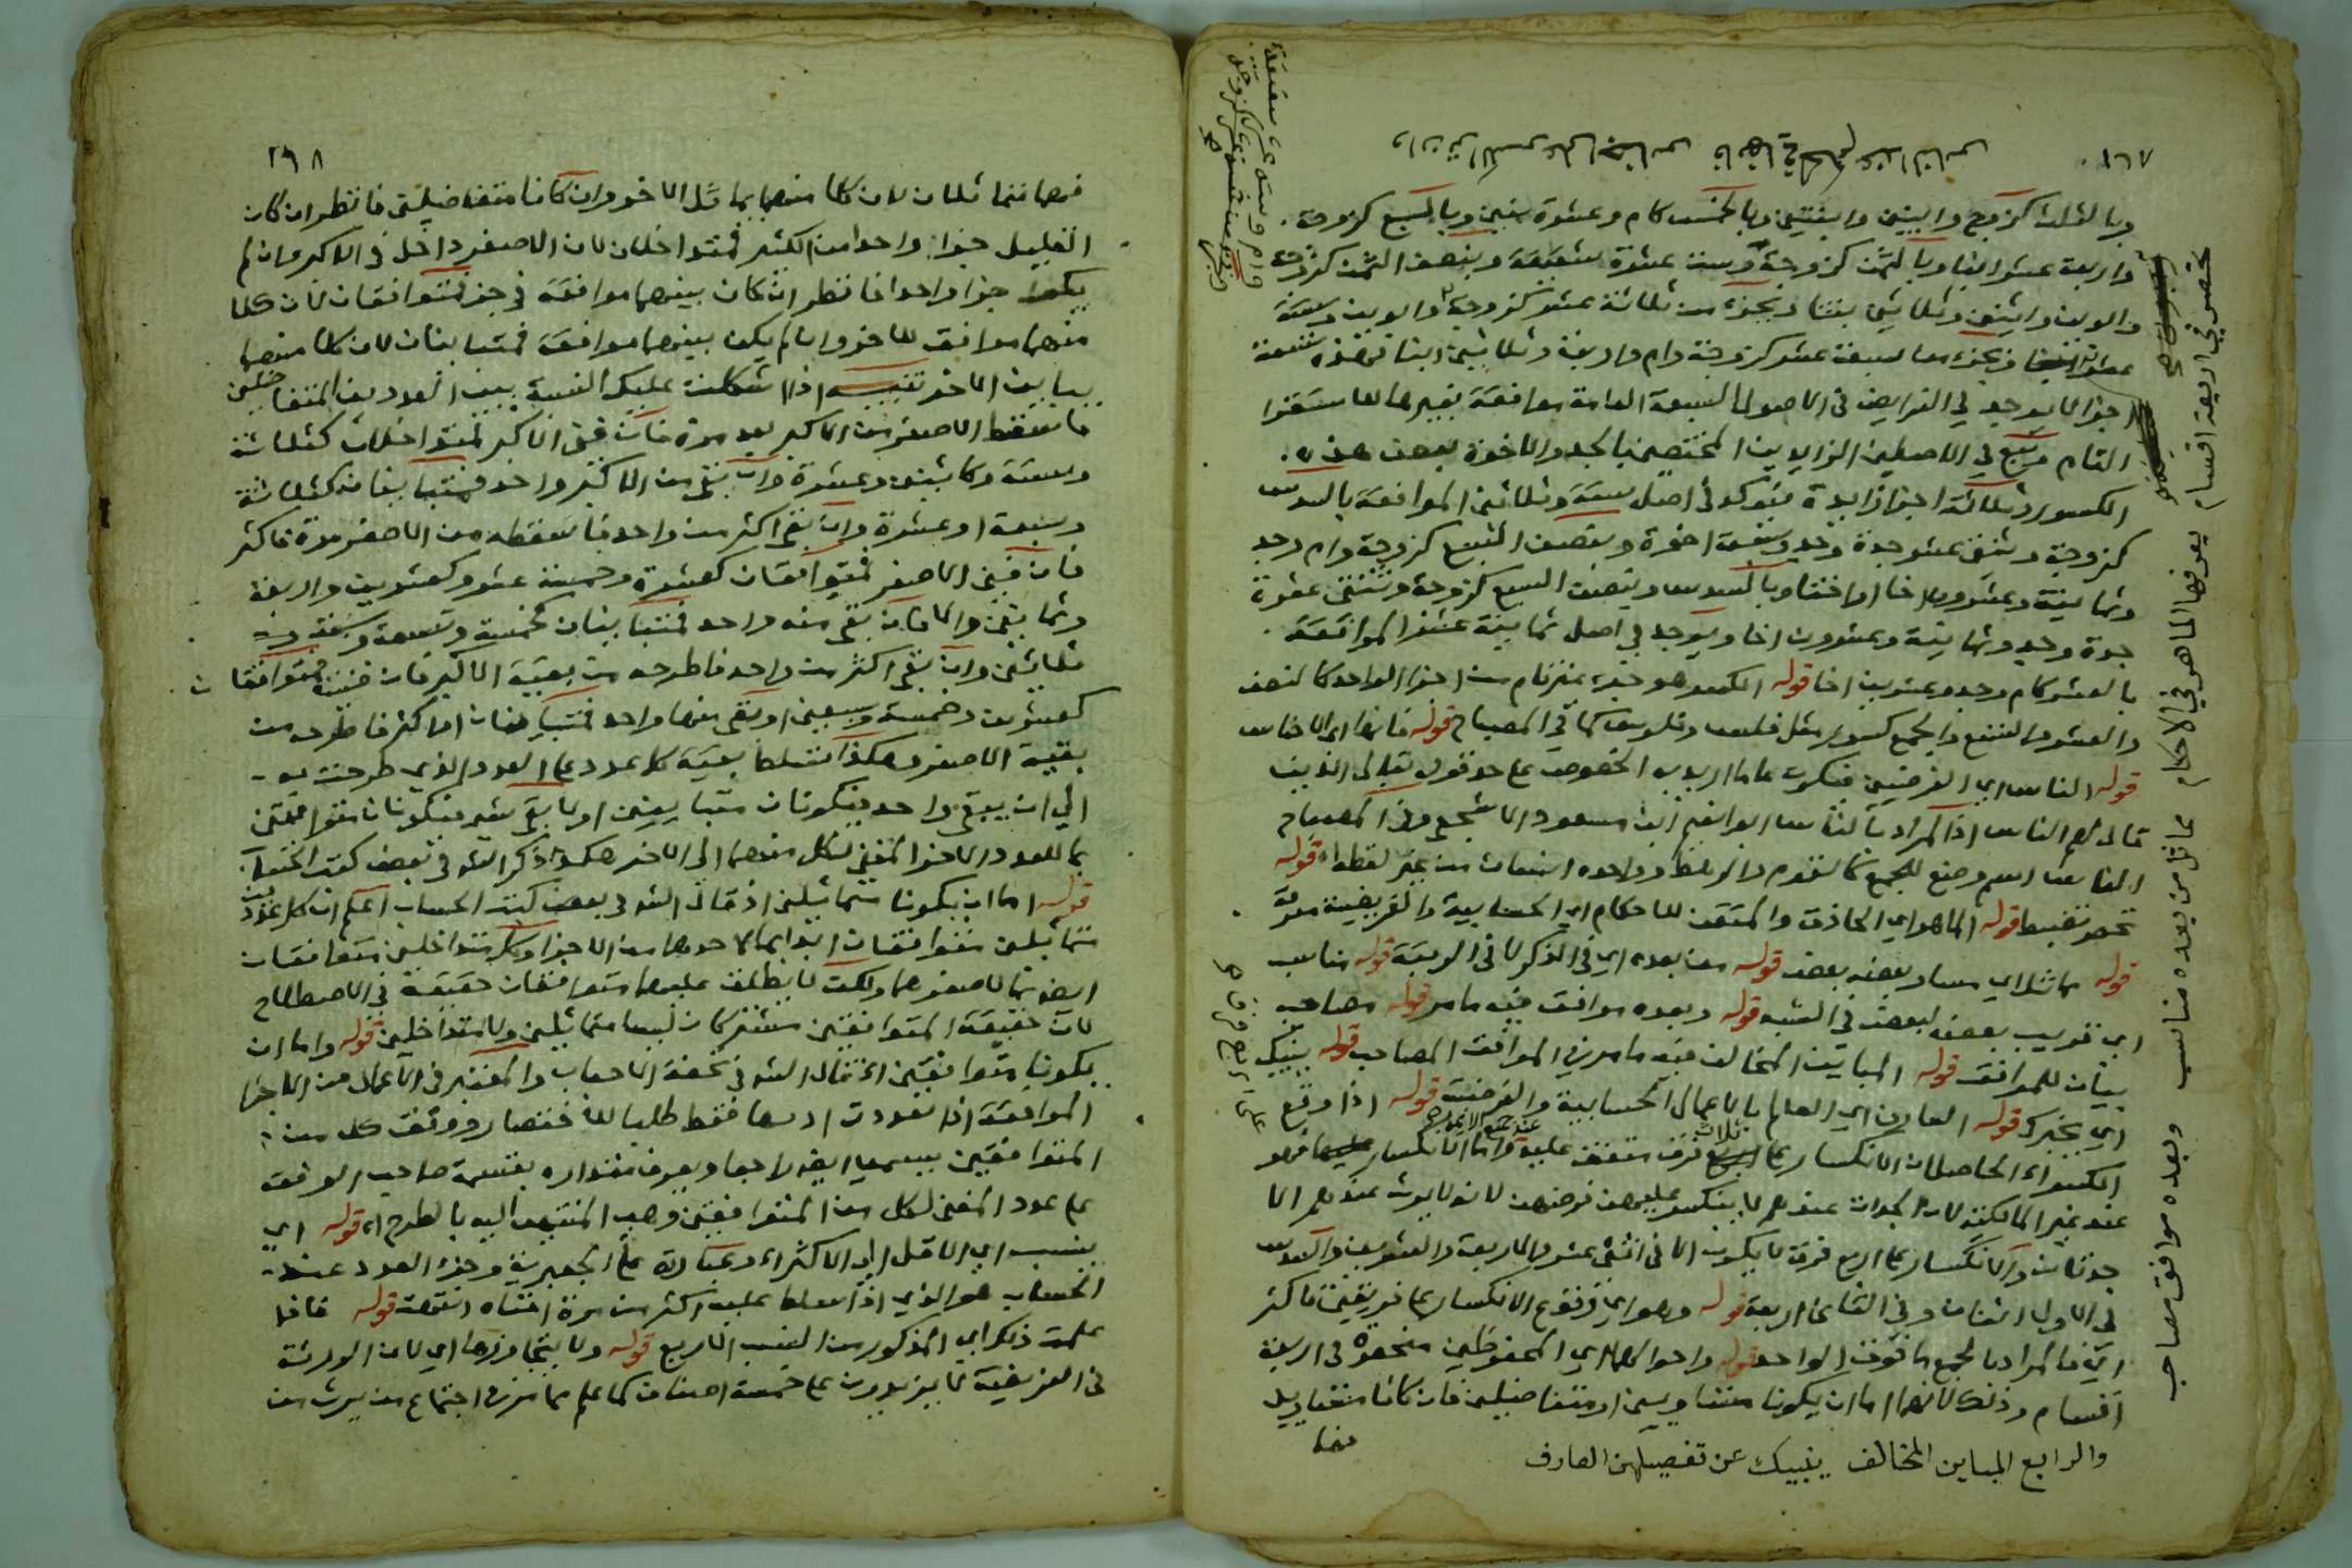 وبالثلث كزوج وابنين وابنتين وبالخمس كام وعشرة بنين وبالسبع كزوجة
واربعة عشر ابنا وبالثمن كزوجة وست عشرة شقيقة وبنصف الثمن كزوجة
والوين واثنين وثلاثين بنتا وبجزء من ثلاثة عشر كزوجة وابوين وستة
وبجزء من سبعة عشر كزوجة وام واربعة وثلاثين ابنا فهذه تسعة
اجزا لا يوجد في الفرايض في الاصول السبعة العامة موافقة بغيرها للاستقرا
التام ويقع في الاصلين الزايدين المختصين بالجد والاخوة بعض هذه
الكسور وثلاثة اجزا زايدة فيوجد في اصل ستة وثلاثين الموافقة بالسدس
كزوجة وثنتي عشر جدة وجد وسبعة اخوة وبنصف التسع كزوجة وام وجد
وثمانية وعشرون اخا او اختا وبالسدس وبنصف السبع كزوجة وثنتي عشرة
جدة وجد وثمانية وعشرون اخا ويوجد في اصل ثمانية عشر الموافقة
بالعشر كام وجد وعشرين اخا قوله الكسر هو جزء غير تام من اجزا الواحد كالنصف
والعشر والتسع والجمع كسور مثل فلس وفلوس كما في المصباح قوله فانها اي الاجناس
قوله الناس اي الفرضيين فيكون عاما اريد به الخصوص على حد قوله تعالى الذين
قال لهم الناس اذ المراد بالناس ابو نعيم ابن مسعود الاشجعي وفي المصباح
الناس اسم وضع للجمع كالقوم والرهط وواحده انسان من غير لفظه قوله
تحصر تضبط قوله الماهر اي الحاذق والمتقن للاحكام اي الحسابية والفريضية معرفة
قوله مماثل اي مساو بعضه بعض قوله من بعده اي في الذكر لا في الرتبة قوله مناسب
اي قريب بعضه لبعض في النسبة قوله وبعده موافق فيه ما مر قوله مصاحب
بيان للموافق قوله المباين المخالف فيه ما مر في الموافق المصاحب قوله ينبيك
اي يخبرك قوله العارف اي العالم بالاعمال الحسابية والفرضية قوله اذا وقع
الكسر اي الحاصل ان الانكسار على ثلاث فرق متفق عليه واما الانكسار على اربع فهو
عند غير المالكية لان الجدات عندهم لا ينكسر عليهن فرضهن لانه لا يورث عندهم الا
جدتان والانكسار على اربع فرق لا يكون الا في اثني عشر والاربعة والعشرين والسدس
في الاول اثنان وفي الثاني اربعة قوله وهو اي وقوع الانكسار على فريقين فاكثر
اي فالمراد بالجمع ما فوق الواحد قوله واحوالهما اي المحفوظين منحصرة في اربعة
اقسام وذلك لانهما اما ان يكونا متساويين او متفاضلين فان كانا متساويين
فهما
وان تر الكسر على اجناس فانها في الحكم عند الناس
تحصر في اربعة اقسام يعرفها الماهر في الاحكام
مماثل من بعده مناسب وبعده موافق مصاحب
والرابع المباين المخالف ينبيك عن تفصيلهن العارف
٢٩٨
فهما متماثلان لان كلا منهما يماثل الاخر وان كانا متفاضلين فانظر ان كان
القليل جزا واحدا من الكثير فمتداخلان لان الاصغر داخل في الاكبر وان لم
يكن جزا واحدا فانظر ان كان بينهما موافقة في جزء فمتوافقان لان كلا
منهما موافق للاخر وان لم يكن بينهما موافقة فمتباينان لان كلا منهما
يباين الاخر تنبيه اذا اشكلت عليك النسبة بين العددين المتفاضلين
فاسقط الاصغر من الاكبر بعد مرة فان فني الاكبر فمتداخلان كثلاثة
وستة وكاثنين وعشرة وان بقي من الاكبر واحد فمتباينان كثلاثة
وسبعة او عشرة وان بقي اكثر من واحد فاسقطه من الاصغر مرة فاكثر
فان فني الاصغر فمتوافقان كعشرة وخمسة عشر وكعشرين واربعة
وثمانين والا فان بقي منه واحد فمتباينان كخمسة وتسعة وسبعة و
ثلاثين وان بقي اكثر من واحد فاطرحه من بقية الاكبر فان فنيت فمتوافقان
كعشرين وخمسة وسبعين او بقي منها واحد فمتباينان او اكثر فاطرحه من
بقية الاصغر وهكذا تسلط بقية كل عدد على العدد الذي طرحت به
الي ان يبقي واحد فيكونان متباينين او لا يبقى شيء فيكونان متوافقين
بما للعدد الاخر المفني لكل منهما الى الاخر هكذا ذكر الش في بعض كتب الحساب
قوله اما ان يكونا متماثلين اذ قال الش في بعض كتب الحساب اعلم ان كل عددين
متماثلين متوافقان ابدا بما لاحدهما من الاجزا وكل متداخلين متوافقان
ايضا بما لاصغرهما ولكن لا يطلق عليهما متوافقان حقيقة في الاصطلاح
لان حقيقة المتوافقين مشتركان ليسا متماثلين ولا متداخلين قوله واما ان
يكونا متوافقين اذ قال الش في تحفة الاحباب والمعتبر في الاعمال من الاجزا
الموافقة اذا تعددت ادقها فقط طلبا للاختصار ووفق كل من
المتوافقين يسمي ايضا راجعا ويعرف مقداره بقسمة صاحب الوفق
على عدد المفني لكل من المتوافقين وهو المنتهى اليه بالطرح اه قوله اي
ينسب اي الاقل الى الاكثر اه وعبارة على الجعبرية وجزء العدد عند
الحساب هو الذي اذا سلط عليه اكثر من مرة افناه انتهت قوله فاذا
علمت ذلك اي المذكور من النسب الاربع قوله ولا يتجاوزها اي لان الورثة
في الفريضة لا يزيدون على خمسة اصناف كما علم مما مر في اجتماع من يرث من